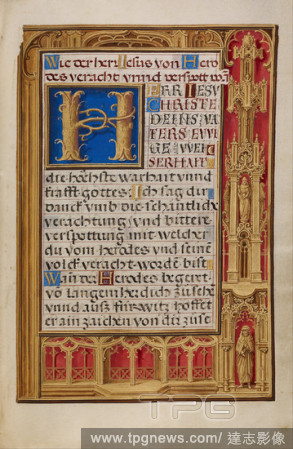 Wie der herr Iesus von Hero
des veracht vnnd verspott ward
HERR IESV
CHRISTE
DEINS VA
TERS EWI
GE WEIS
HERHAFT
die höchste warhait vnnd
krafft gottes: Ich sag dir
danck vmb die schäntlich
verachtung: vnd bittere
verspottung mit welcher
du vom herodes vnd seine
volck veracht worde bist
Wan der Herodes begert
vo langem her dich zusehe
vnnd auß fürwitz hoffet
er ain zaichen von dir zuse
TPG
www.tpgnews.com / 達志影像